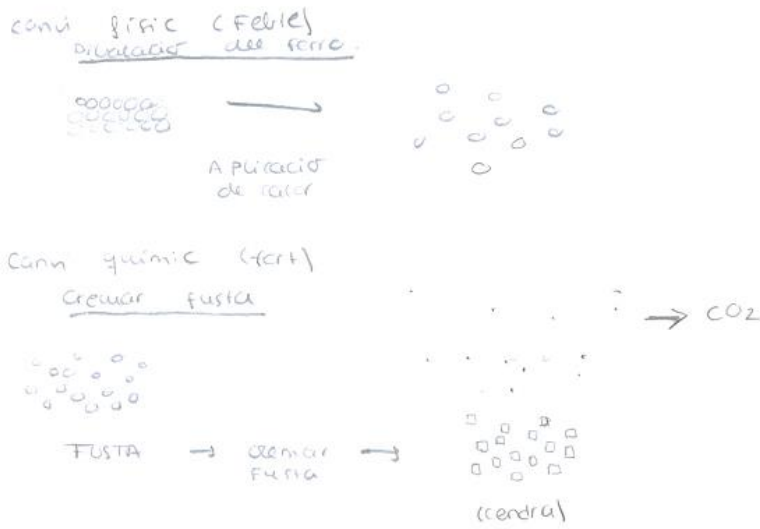 canvi físic (Feble)
Dilatació del ferro.
Aplicació
de calor
Canvi químic (fort)
Cremar fusta
→ CO2
FUSTA → cremar →
Fusta
(cendra)